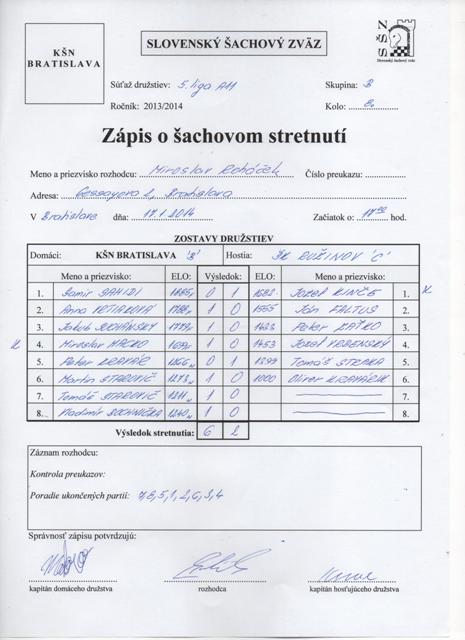 KŠN
BRATISLAVA
SLOVENSKÝ ŠACHOVÝ ZVÄZ
SŠZ
Slovenský šachový zväz
Súťaž družstiev: 5. liga A11 Skupina: B
Ročník: 2013/2014 Kolo: 8.
Zápis o šachovom stretnutí
Meno a priezvisko rozhodcu: Miroslav Roháček Číslo preukazu:
Adresa: Bratislava
V Bratislave dňa: 17.1.2014 Začiatok o: 17 00 hod.
ZOSTAVY DRUŽSTIEV
Domáci: KŠN BRATISLAVA 'B' Hostia: ŠK RUŽINOV 'C'
Meno a priezvisko: ELO: Výsledok: ELO: Meno a priezvisko:
1. Samir SAHIDI 0 1 1682 Jozef KINČE 1. K
2. Anna 1 0 1555 Ján FALTUS 2.
3. Jakub SUCHÁNSKY 1 0 Peter MAŤKO 3.
K 4. Miroslav MACKO 1 0 1453 Jozef 4.
5. Peter KRAVÁR 0 1 1399 Tomáš 5.
6. Martin STAROVIČ 1273 1 0 1000 Oliver KRAHÁRIK 6.
7. Tomáš STAROVIČ 1211 1 0 7.
8. Vladimír SUCHNIČKA 1240 1 0 8.
Výsledok stretnutia: 6 2
Záznam rozhodcu:
Kontrola preukazov:
Poradie ukončených partií: 7,8,5,1,2,6,3,4
Správnosť zápisu potvrdzujú:
kapitán domáceho družstva rozhodca kapitán hosťujúceho družstva